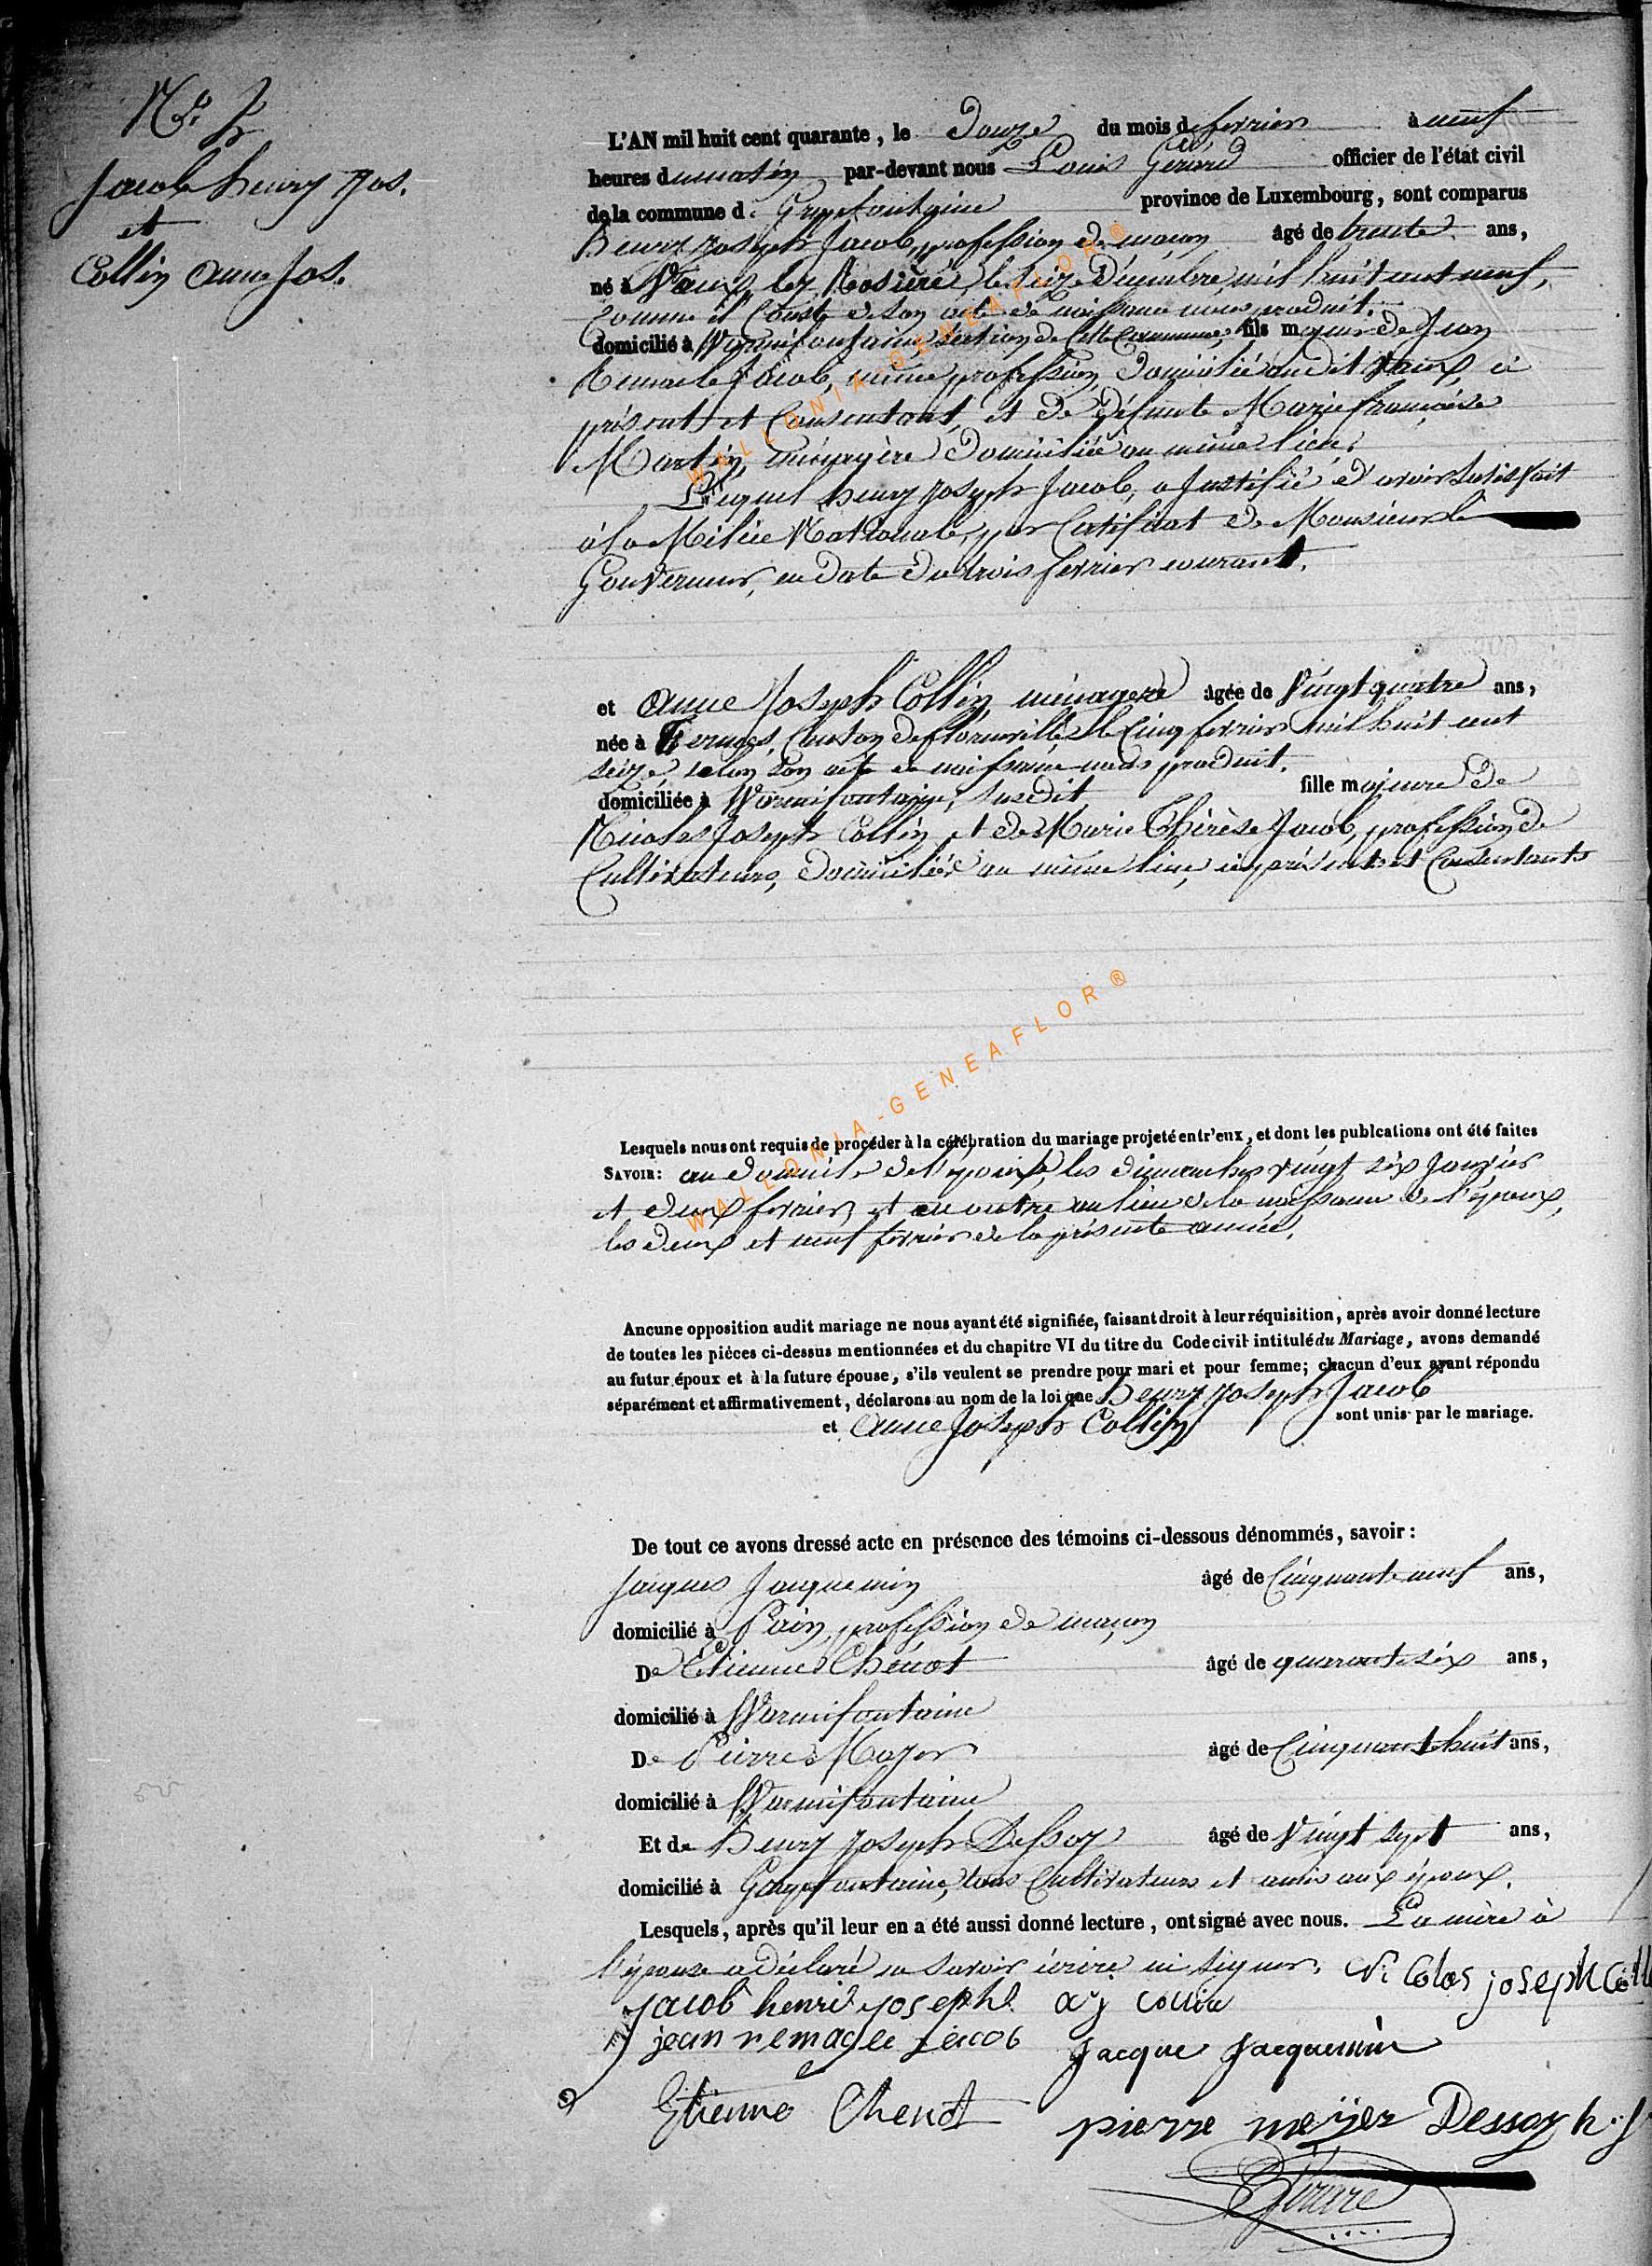 Jacob henry Jos.
et
Collin Anne Jos.
L'AN mil huit cent quarante, le Douze du mois de fevrier à neuf
heures du matin par-devant nous Louis Gérard officier de l'état civil
de la commune de Grapfontaine province de Luxembourg, sont comparus
henry Joseph Jacob, profession de maçon âgé de trente ans,
né à Vaux lez Rosière, le seize Décembre mil huit cent neuf,
comme il conste de son acte de naissance nous produit.
domicilié à Warmifontaine, section de cette commune, fils majeur de Jean
Remacle Jacob, même profession, domicilié au dit Vaux, ci
présent et consentant, et de défunte Marie françoise
Martin, ménagère domiciliée au même lieu,
Lequel henry Joseph Jacob, a justifié d'avoir satisfait
à la Milice Nationale, par Certificat de Monsieur le
Gouverneur, en date du trois fevrier courant.
et Anne Joseph Collin, ménagere âgée de Vingt quatre ans,
née à Termes, Canton de florenville, le Cinq fevrier mil huit cent
seize, selon son acte de naissance nous produit.
domiciliée à Warmifontaine, susdit, fille majeure de
Nicolas Joseph Collin, et de Marie Thérèse Jacob, profession de
Cultivateurs, domiciliés au même lieu, ici présents et Consentants
Lesquels nous ont requis de procéder à la célébration du mariage projeté entr'eux, et dont les publcations ont été faites
SAVOIR: au domicile de l'épouse, les dimanches vingt six Janvier
et deux fevrier, et en outre au lieu de la naissance de l'époux,
les deux et neuf fevrier de la présente année.
Aucune opposition audit mariage ne nous ayant été signifiée, faisant droit à leur réquisition, après avoir donné lecture
de toutes les pièces ci-dessus mentionnées et du chapitre VI du titre du Code civil intitulé du Mariage, avons demandé
au futur époux et à la future épouse, s'ils veulent se prendre pour mari et pour femme; chacun d'eux ayant répondu
séparément et affirmativement, déclarons au nom de la loi que henry Joseph Jacob
et Anne Joseph Collin sont unis par le mariage.
De tout ce avons dressé acte en présence des témoins ci-dessous dénommés, savoir:
Jacques Jacquemin âgé de Cinquante neuf ans,
domicilié à profession de maçon
De Etienne Chenot âgé de quarante six ans,
domicilié à Warmifontaine
De Pierre Mayer âgé de Cinquante huit ans,
domicilié à Warmifontaine
Et de henry Joseph Dessoy âgé de Vingt sept ans,
domicilié à Grapfontaine, tous Cultivateurs et amis aux époux.
Lesquels, après qu'il leur en a été aussi donné lecture, ont signé avec nous. La mère à
l'épouse a déclaré ne savoir écrire ni signer. Nicolas joseph Coll
jacob henri joseph a j collin
jean remacle jacob jacque jacquemin
Etienne Chenot pierre meÿer Dessoy h. j
WALLONIA-GENEAFLOR®
WALLONIA-GENEAFLOR®